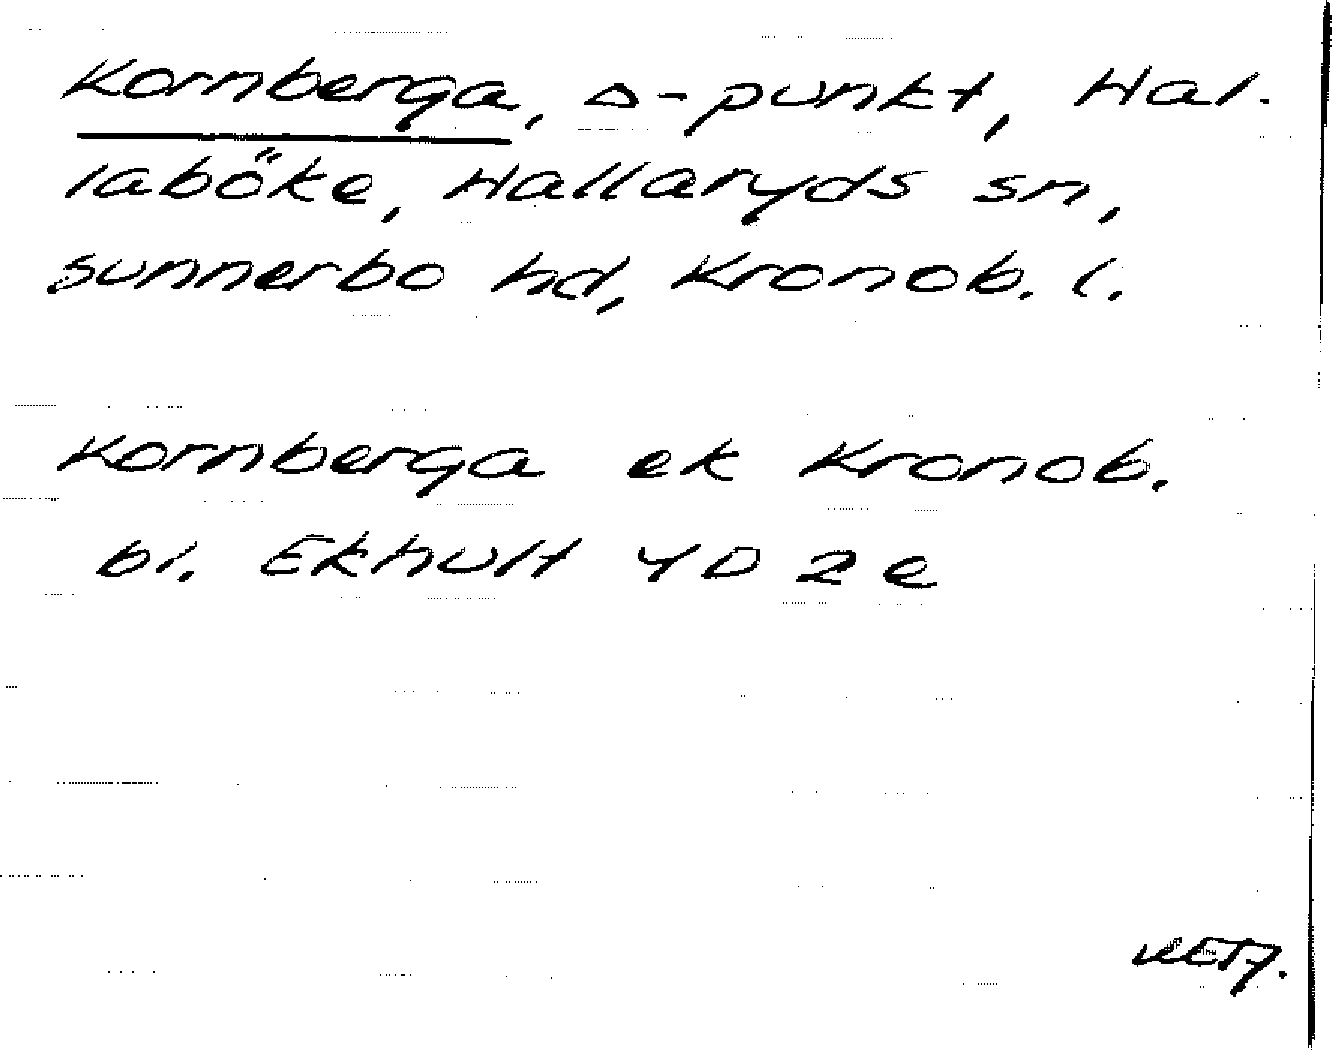 Kornberga, Δ-punkt, Hal-
laböke, Hallaryds sn,
Sunnerbo hd, Kronob. l.
Kornberga ek Kronob.
bl. Ekhult 4D 2e